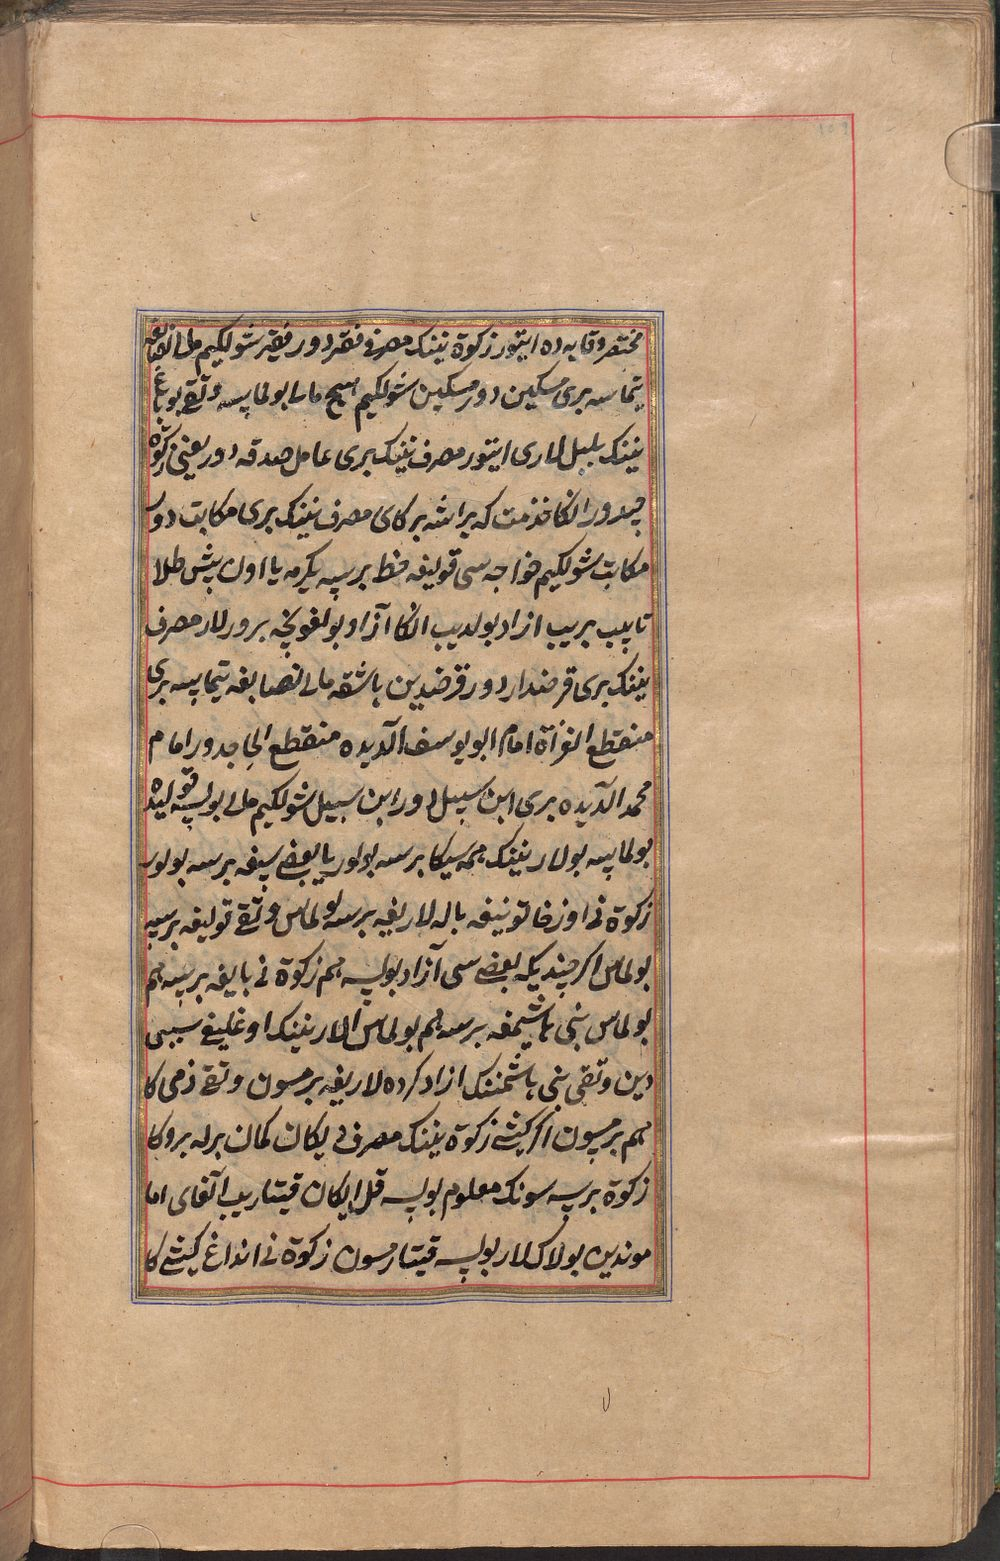 مختصر وقایه ده ایتور زکوة نینک مصرفی فقر دور فقیر شولکیم مالی انصابغه
یتماسه بری مسکین دور مسکین شولکیم هیچ مالی بولماسه وتقی بو باغ
نینک بلبل لاری ایتور مصرف نینک بری عامل صدقه دور یعنی زکوة
چیدور انکا خذمت که یراشه برکای مصرف نینک بری مکابت دور
مکابت شولکیم خواجه سی قولیغه خط برسه یکرمه یا اون بیش طلا
تاپیب بریب ازاد بولدیب انکا آزاد بولغونچه برورلار مصرف
نینک بری قرضدار دور قرضیدین باشقه مالی انصابغه یتماسه بری
منقطع الغزاة امام ابو یوسف الدیده منقطع الحاج دور امام
محمد الدیده بری ابن سبیل دور ابن سبیل شولکیم مالی بولسه قولیده
بولماسه بولار نینک همه سیکا برسه بولور یا بعضی سیغه برسه بولور
زکوة نی اوز خاتونیغه باله لاریغه برسه بولماس وتقی قولیغه برسه
بولماس اکر چندیکه بعضی سی آزاد بولسه هم زکوة نی بایغه برسه هم
بولماس بنی هاشمغه برسه هم بولماس الار نینک اوغلیغی سببی
دین وتقی بنی هاشمننک ازاد کرده لاریغه برمسون وتقی ذمی کا
هم برمسون اکر کیشی زکوة نینک مصرفی ایکان کمان برله بروکا
زکوة برسه سونک معلوم بولسه قل ایکان قیتاریب آلغای اما
موندین بولاک لار بولسه قیتارمسون زکوة نی انداغ کیشی کا